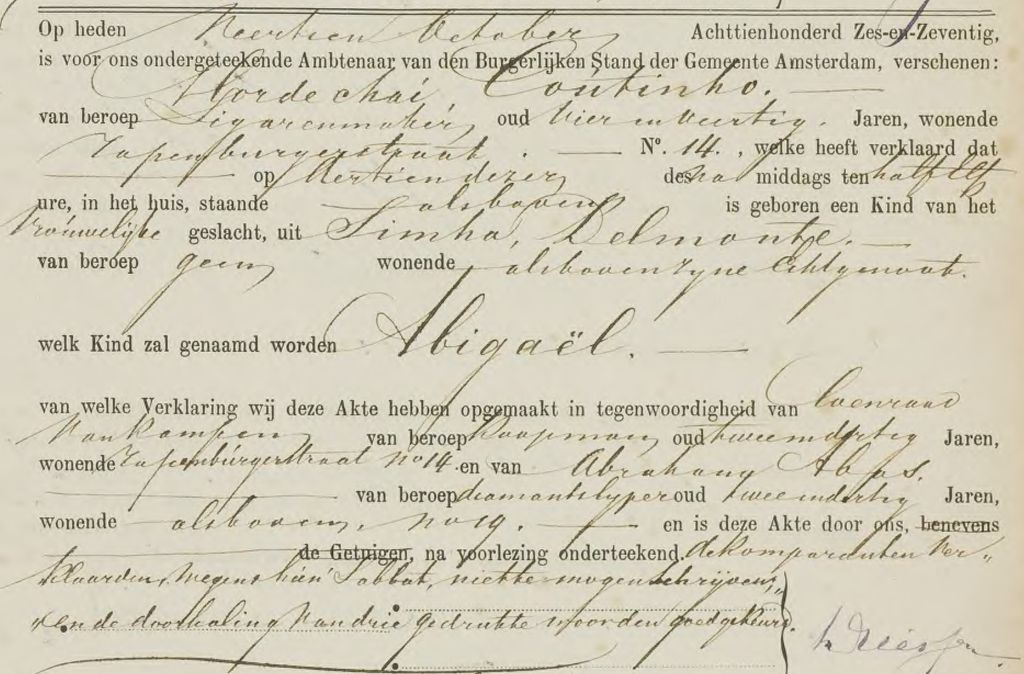 Op heden Veertien October Achttienhonderd Zes-en-Zeventig,
is voor ons ondergeteekende Ambtenaar van den Burgerlijken Stand der Gemeente Amsterdam, verschenen:
Mordechai Coutinho.
van beroep Sigarenmaker oud vier en veertig. Jaren, wonende
Zapenburgerstraat. No. 14., welke heeft verklaard dat
op Dertien dezer des na middags ten half Elf
ure, in het huis, staande alsboven is geboren een Kind van het
Vrouwelijke geslacht, uit Simha, Delmonte.
van beroep geen wonende alsboven zyne Echtgenoot.
welk Kind zal genaamd worden Abigaël.
van welke Verklaring wij deze Akte hebben opgemaakt in tegenwoordigheid van Coenraad
van Kampen van beroep Koopman oud tweeendertig Jaren,
wonende Zapenburgerstraat no 14. en van Abraham Abas.
van beroep diamantslyper oud tweeendertig Jaren,
wonende alsboven, no 19. en is deze Akte door ons, benevens
de Getuigen, na voorlezing onderteekend. de komparanten ver„
klaarden, wegens hun Sabbat, niet te mogen schrijven,„
en de doorhaling van drie gedrukte woorden goedgekeurd.